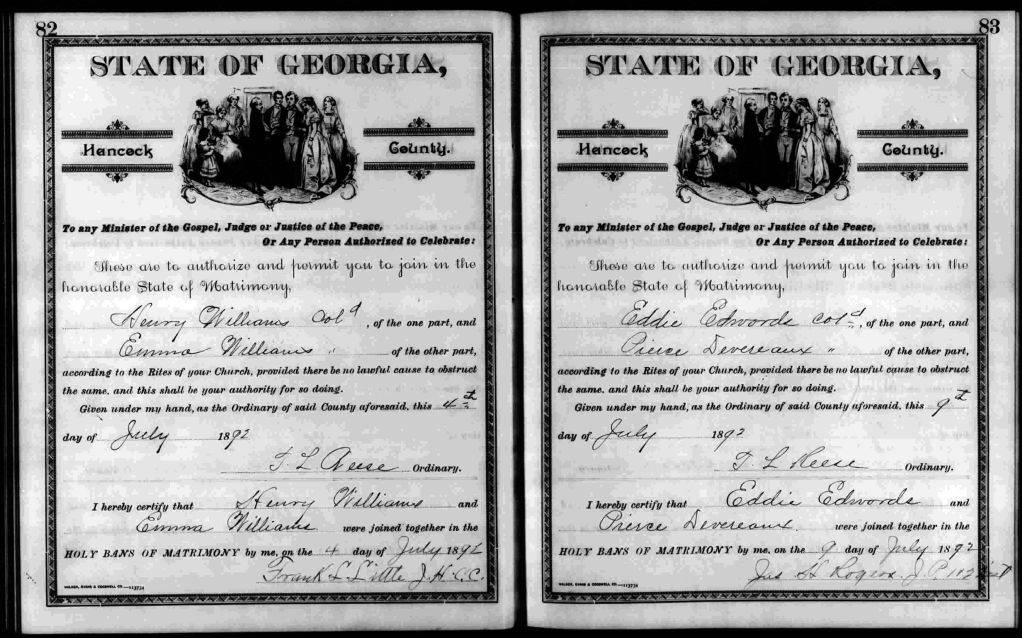 82
STATE OF GEORGIA,
Hancock County.
To any Minister of the Gospel, Judge or Justice of the Peace,
Or Any Person Authorized to Celebrate:
These are to authorize and permit you to join in the
honorable State of Matrimony,
Henry Williams Col^d, of the one part, and
Emma Williams " of the other part,
according to the Rites of your Church, provided there be no lawful cause to obstruct
the same, and this shall be your authority for so doing.
Given under my hand, as the Ordinary of said County aforesaid, this 4th
day of July 1892
T. L. Reese Ordinary.
I hereby certify that Henry Williams and
Emma Williams were joined together in the
HOLY BANS OF MATRIMONY by me, on the 4 day of July 1892
Frank L Little J. H. C. C.
WALKER, EVANS & COGSWELL CO.—113734
83
STATE OF GEORGIA,
Hancock County.
To any Minister of the Gospel, Judge or Justice of the Peace,
Or Any Person Authorized to Celebrate:
These are to authorize and permit you to join in the
honorable State of Matrimony,
Eddie Edwords Col^d, of the one part, and
Pierce Devereaux " of the other part,
according to the Rites of your Church, provided there be no lawful cause to obstruct
the same, and this shall be your authority for so doing.
Given under my hand, as the Ordinary of said County aforesaid, this 9th
day of July 1892
T. L Reese Ordinary.
I hereby certify that Eddie Edwords and
Pierce Devereaux. were joined together in the
HOLY BANS OF MATRIMONY by me, on the 9 day of July 1892
Jas H Rogers. J. P.
WALKER, EVANS & COGSWELL CO.—113734